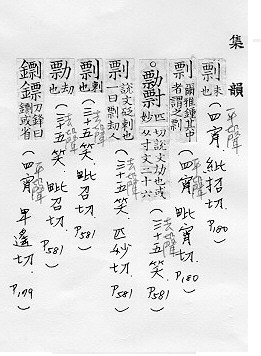 集韻
剽 末也 (四宵 紕招切. P.180) 平聲
剽 爾雅鍾其中者謂之剽 (四宵 毗宵切. P.180) 平聲
。勡 匹妙切說文劫也或从寸文二十六 (三十五笑. P.581) 去聲
剽 說文砭刺也一曰剽劫人 (三十五笑. 匹妙切 P.581) 去聲
剽 刺也 (三十五笑. 毗召切. P.581) 去聲
勡 劫也 (三十五笑. 毗召切. P.581) 去聲
鏢 刀鋒曰鏢或省 (四宵 卑遙切. P.179) 平聲